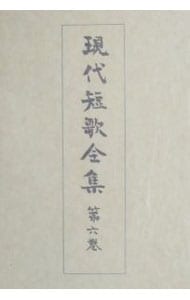 現代短歌全集 第六巻